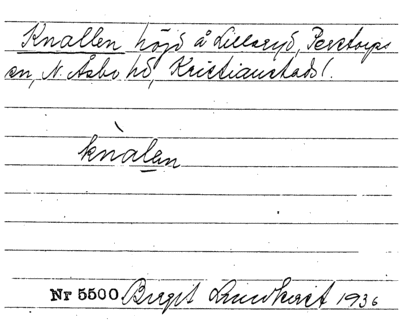 Knallen höjd å Lillaryd, Perstorps
sn, N. Åsbo hd, Kristianstads l.
knalen
Nr 5500 Birgit Lundkvist 1936